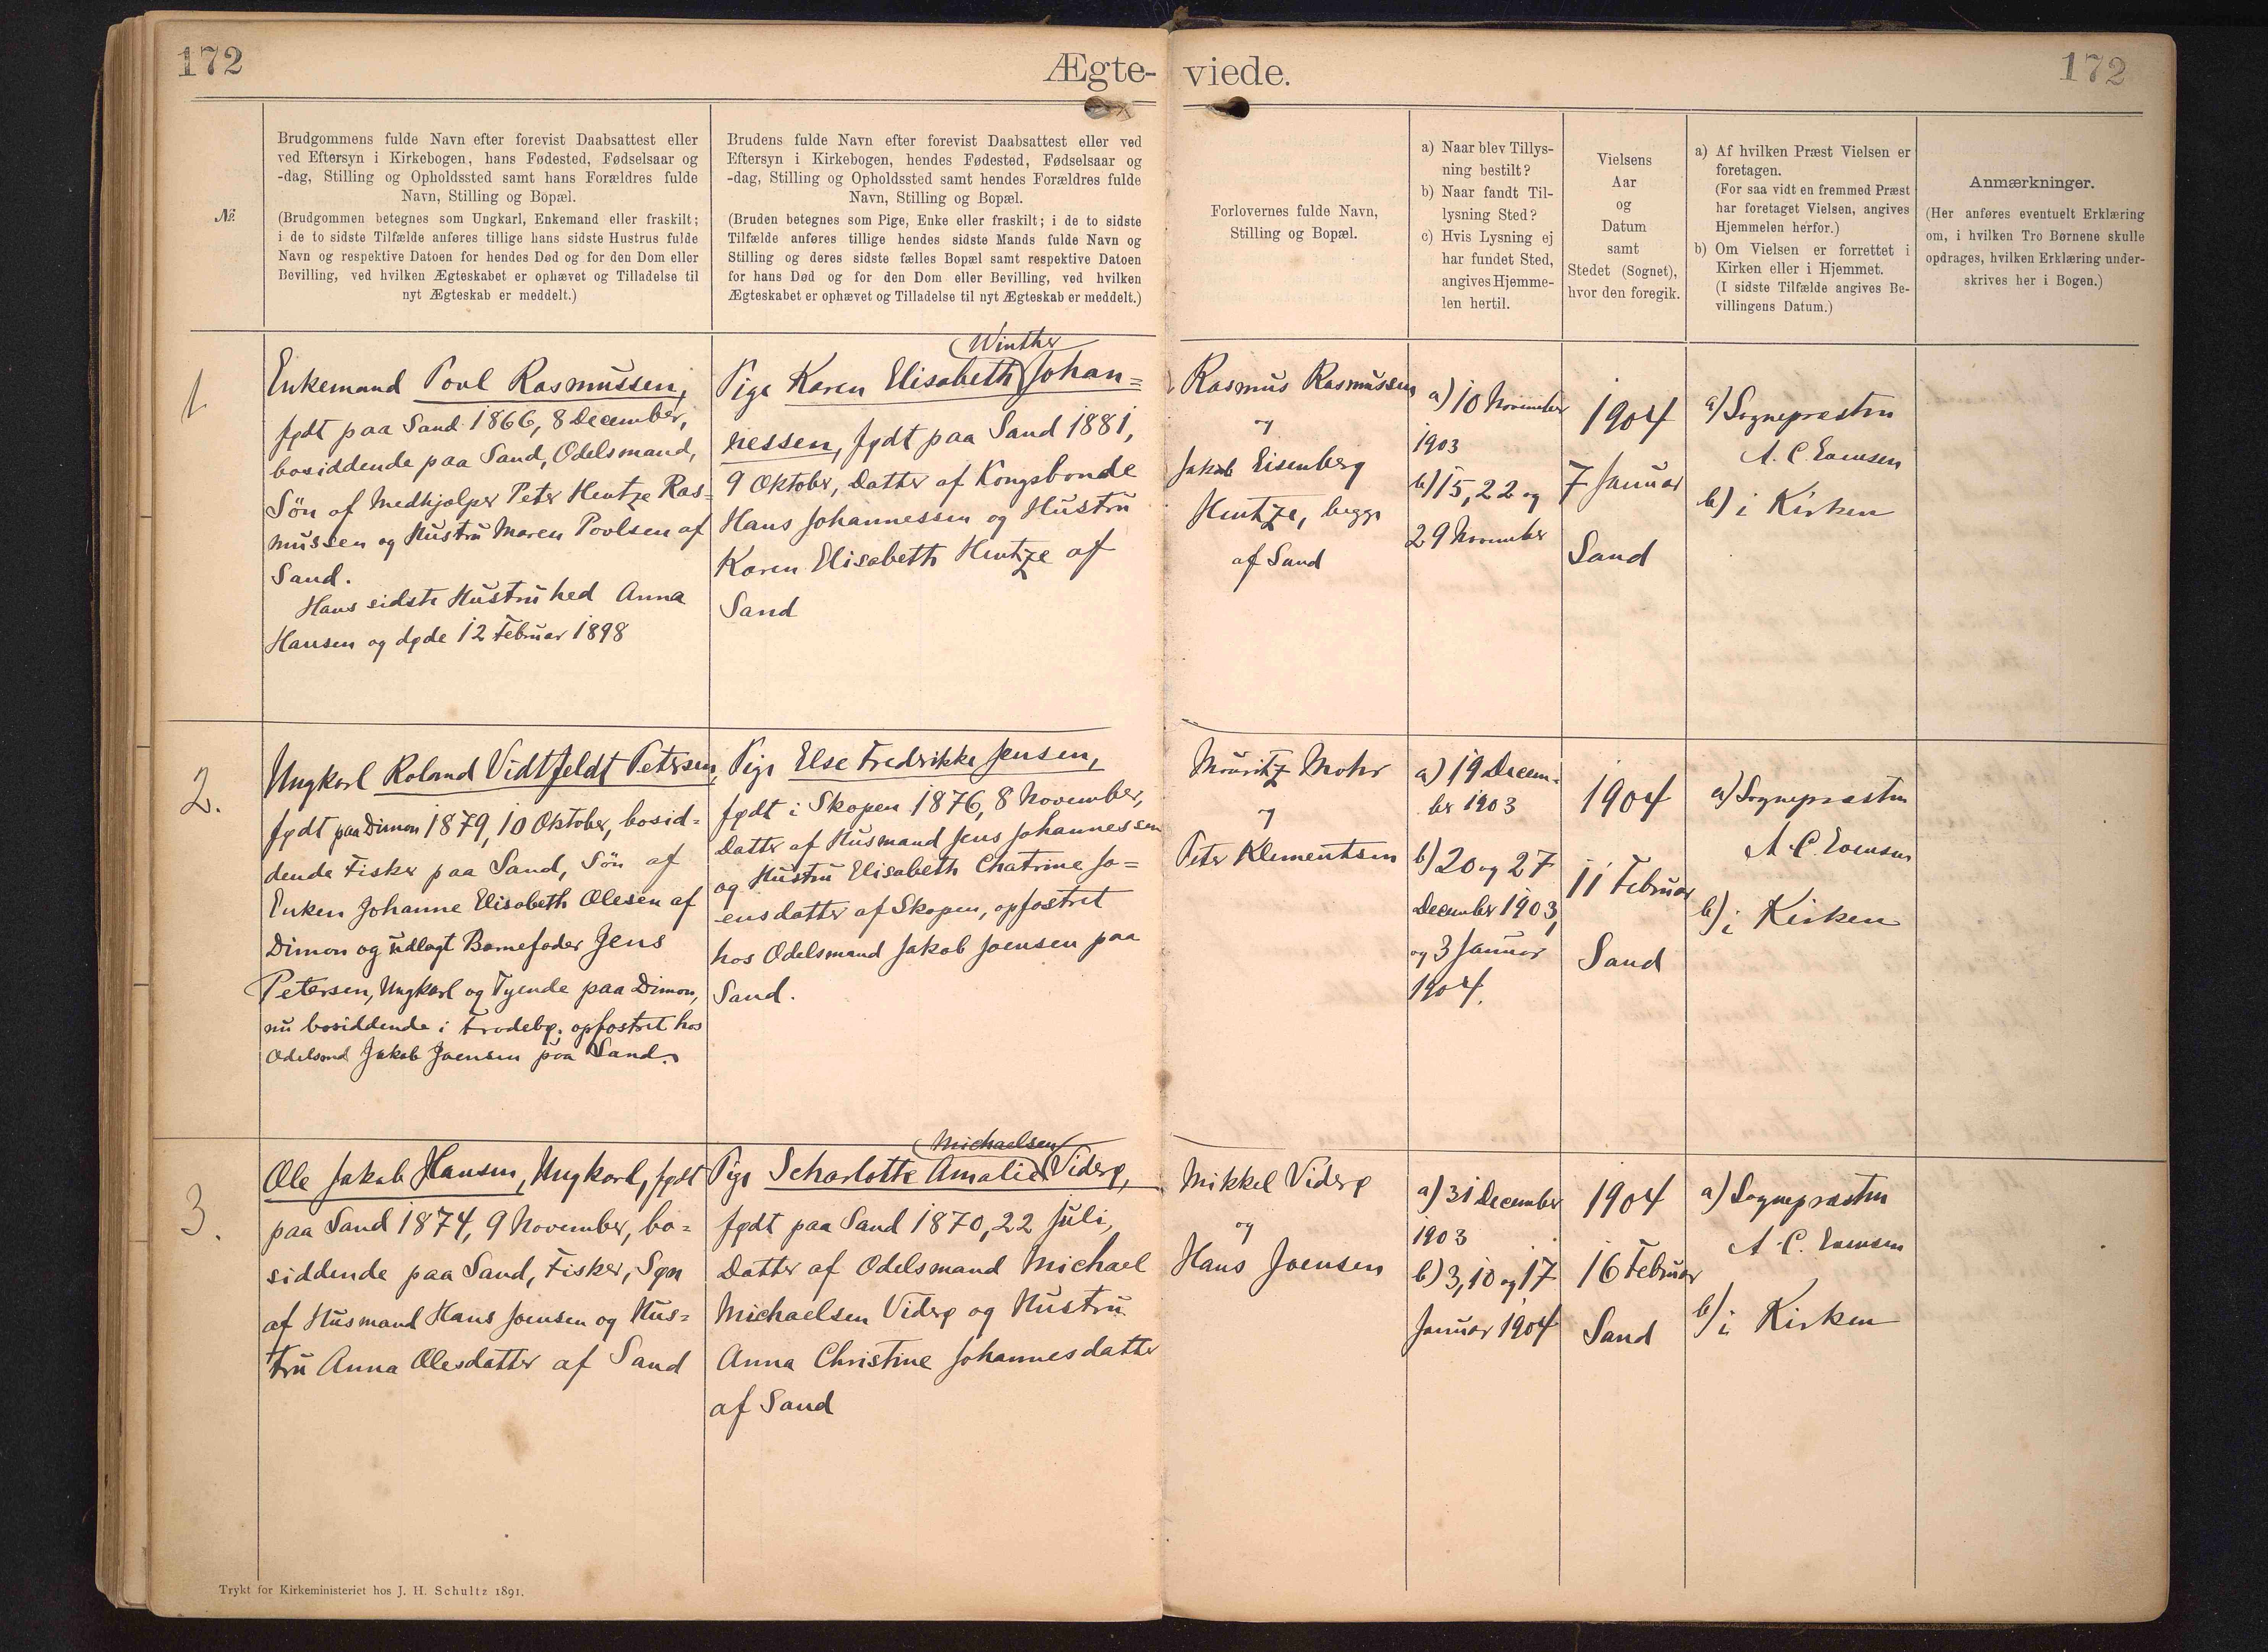 172
Ægte-
viede.
172
№.
Brudgommens fulde Navn efter forevist Daabsattest eller
ved Eftersyn i Kirkebogen, hans Fødested, Fødselsaar og
-dag, Stilling og Opholdssted samt hans Forældres fulde
Navn, Stilling og Bopæl.
(Brudgommen betegnes som Ungkarl, Enkemand eller fraskilt;
i de to sidste Tilfælde anføres tillige hans sidste Hustrus fulde
Navn og respektive Datoen for hendes Død og for den Dom eller
Bevilling, ved hvilken Ægteskabet er ophævet og Tilladelse til
nyt Ægteskab er meddelt.)
Brudens fulde Navn efter forevist Daabsattest eller ved
Eftersyn i Kirkebogen, hendes Fødested, Fødselsaar og
-dag, Stilling og Opholdssted samt hendes Forældres fulde
Navn, Stilling og Bopæl.
(Bruden betegnes som Pige, Enke eller fraskilt; i de to sidste
Tilfælde anføres tillige hendes sidste Mands fulde Navn og
Stilling og deres sidste fælles Bopæl samt respektive Datoen
for hans Død og for den Dom eller Bevilling, ved hvilken
Ægteskabet er ophævet og Tilladelse til nyt Ægteskab er meddelt.)
Forlovernes fulde Navn,
Stilling og Bopæl.
a) Naar blev Tillys-
ning bestilt?
b) Naar fandt Til-
lysning Sted?
c) Hvis Lysning ej
har fundet Sted,
angives Hjemme-
len hertil.
Vielsens
Aar
og
Datum
samt
Stedet (Sognet),
hvor den foregik.
a) Af hvilken Præst Vielsen er
foretagen.
(For saa vidt en fremmed Præst
har foretaget Vielsen, angives
Hjemmelen herfor.)
b) Om Vielsen er forrettet i
Kirken eller i Hjemmet.
(I sidste Tilfælde angives Be-
villingens Datum.)
Anmærkninger.
(Her anføres eventuelt Erklæring
om, i hvilken Tro Børnene skulle
opdrages, hvilken Erklæring under-
skrives her i Bogen.)
1
Enkemand Povl Rasmussen,
født paa Sand 1866, 8 December,
bosiddende paa Sand, Odelsmand,
Sön af Medhjælper Peter Hentze Ras=
mussen og Hustru Maren Poulsen af
Sand.
Hans sidste Hustru hed Anna
Hansen og døde 12 Februar 1898
Winther
Pige Karen Elisabeth Johan=
nessen, født paa Sand 1881,
9 Oktober, Datter af Kongsbonde
Hans Johannessen og Hustru
Karen Elisabeth Hentze af
Sand
Rasmus Rasmussen
og
Jakob Eisenberg
Hentze, begge
af Sand
a) 10 November
1903
b) 15, 22 og
29 November
1904
7 Januar
Sand
a) Sognepræsten
A. C. Evensen
b) i Kirken
2.
Ungkarl Roland Vidtfeldt Petersen,
født paa Dimon 1879, 10 Oktober, bosid=
dende Fisker paa Sand, Sön af
Enken Johanne Elisabeth Olesen af
Dimon og udlagt Barnefader Jens
Petersen, Ungkarl og Tyende paa Dimon,
nu bosiddende i Frodebø, opfostret hos
Odelsmd Jakob Joensen paa Sand.
Pige Else Fredrikke Jensen,
født i Skopen 1876, 8 November,
Datter af Husmand Jens Johannessen
og Hustru Elisabeth Chatrine Jo=
ensdatter af Skopen, opfostret
hos Odelsmand Jakob Joensen paa
Sand.
Mouritz Mohr
og
Peter Klementsen
a) 19 Decem-
ber 1903
b) 20 og 27
December 1903,
og 3 Januar
1904.
1904
11 Februar
Sand
a) Sognepræsten
A. C. Evensen
b) i Kirken
3.
Ole Jakob Hansen, Ungkarl, født
paa Sand 1874, 9 November, bo=
siddende paa Sand, Fisker, Søn
af Husmand Hans Joensen og Hus=
tru Anna Olesdatter af Sand
Michaelsen
Pige Scharlotte Amalie Viderø,
født paa Sand 1870, 22 Juli,
Datter af Odelsmand Michael
Michaelsen Viderø og Hustru
Anna Christine Johannesdatter
af Sand
Mikkel Viderø
og
Hans Joensen
a) 31 December
1903
b) 3, 10 og 17
Januar 1904
1904
16 Februar
Sand
a) Sognepræsten
A. C. Evensen
b) i Kirken
Trykt for Kirkeministeriet hos J. H. Schultz 1891.